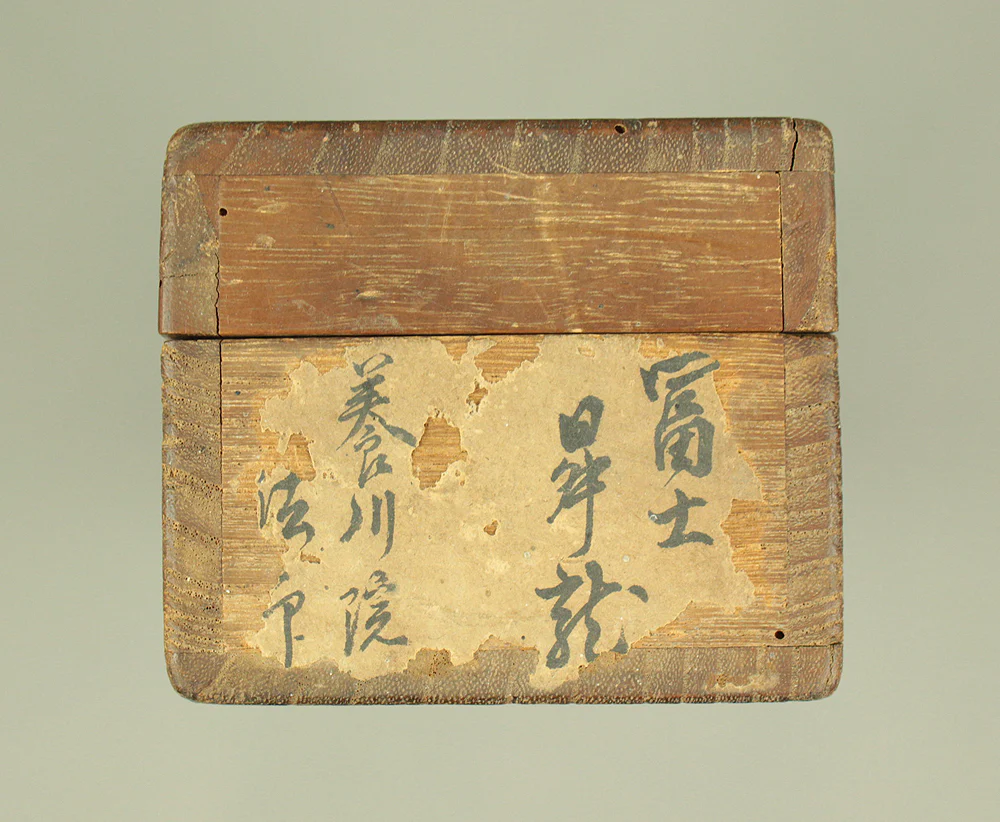 冨士
昇龍
養川院
法印